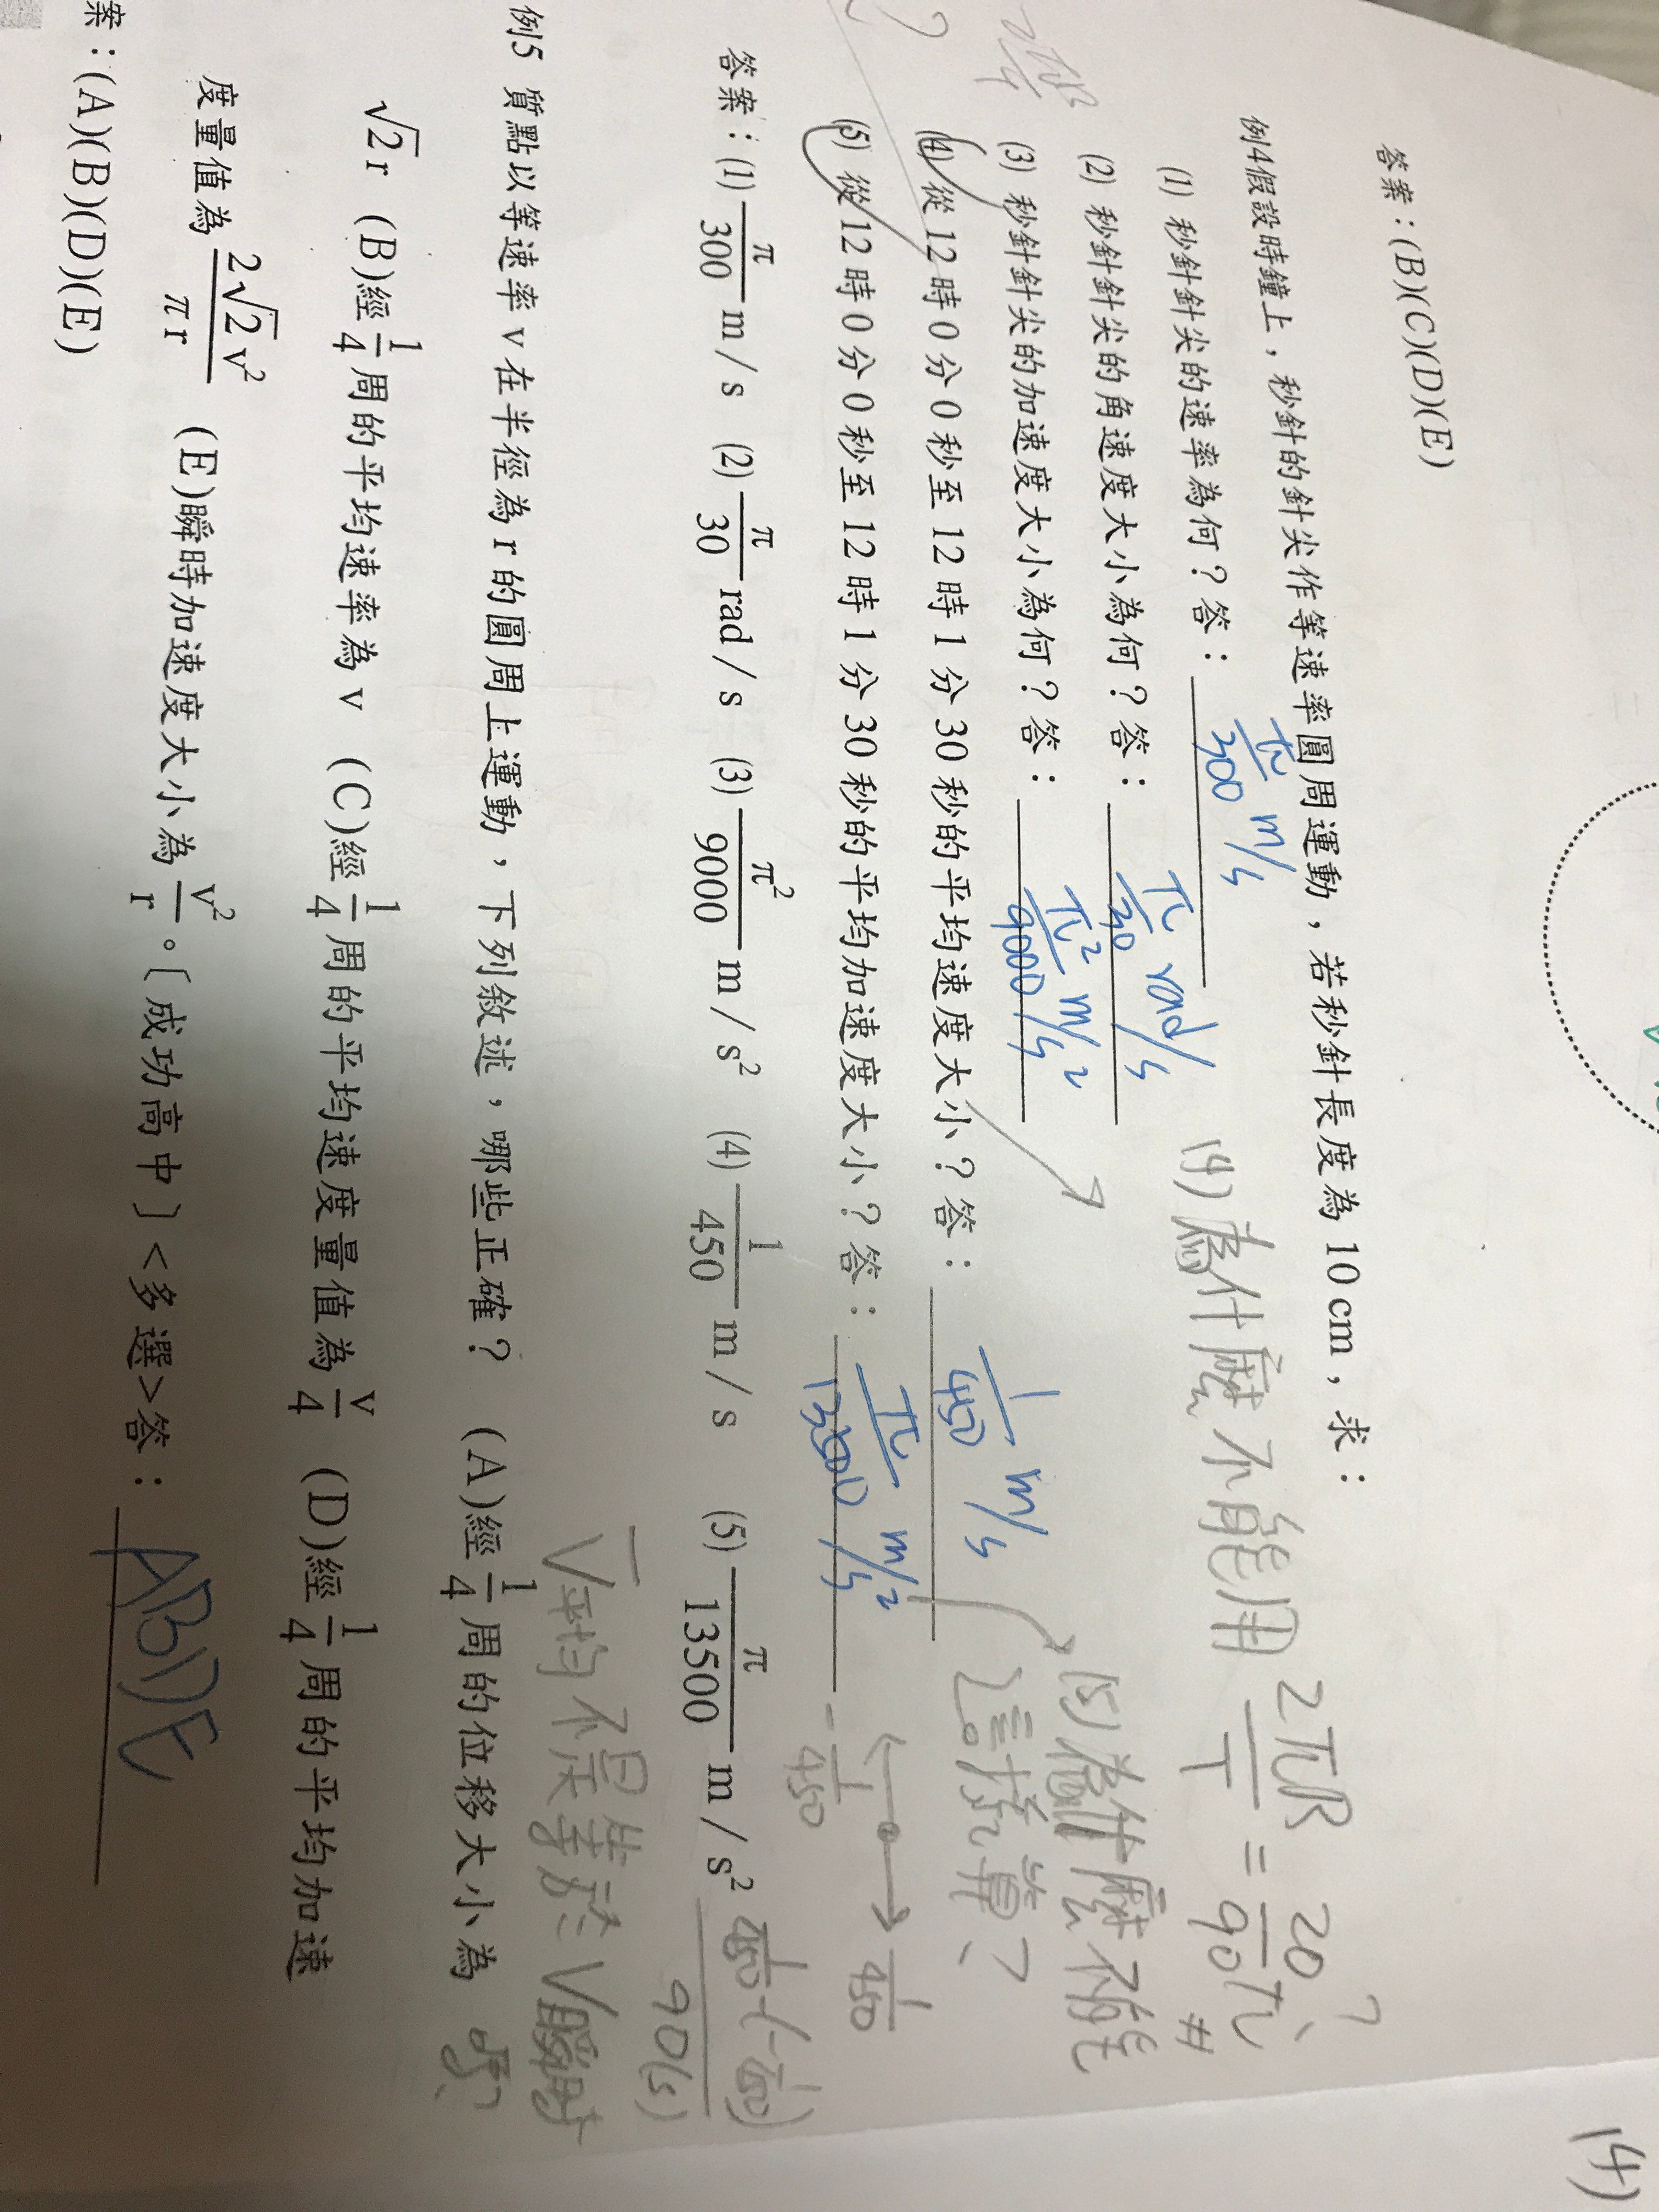 答案：(B)(C)(D)(E)
例4假設時鐘上，秒針的針尖作等速率圓周運動，若秒針長度為 10 cm，求：
(1) 秒針針尖的速率為何？答： π/300 m/s
(2) 秒針針尖的角速度大小為何？答： π/30 rad/s
(3) 秒針針尖的加速度大小為何？答： π²/9000 m/s²
(4) 從 12 時 0 分 0 秒至 12 時 1 分 30 秒的平均速度大小？答： 1/450 m/s
(5) 從 12 時 0 分 0 秒至 12 時 1 分 30 秒的平均加速度大小？答： π/13500 m/s²
(4) 為什麼不能用 2πR/T = 20/90 π ?
(5) 為什麼不能
這樣算？
-1/450 1/450
1/450-(-1/450) / 90(s)
答案：(1) π/300 m/s (2) π/30 rad/s (3) π²/9000 m/s² (4) 1/450 m/s (5) π/13500 m/s²
V平均不是等於V瞬時
嗎?
例5 質點以等速率 v 在半徑為 r 的圓周上運動，下列敘述，哪些正確？ (A)經 1/4 周的位移大小為
√2 r (B)經 1/4 周的平均速率為 v (C)經 1/4 周的平均速度量值為 v/4 (D)經 1/4 周的平均加速
度量值為 2√2 v²/π r (E)瞬時加速度大小為 v²/r。〔成功高中〕<多選>答： ABDE
案：(A)(B)(D)(E)
14)